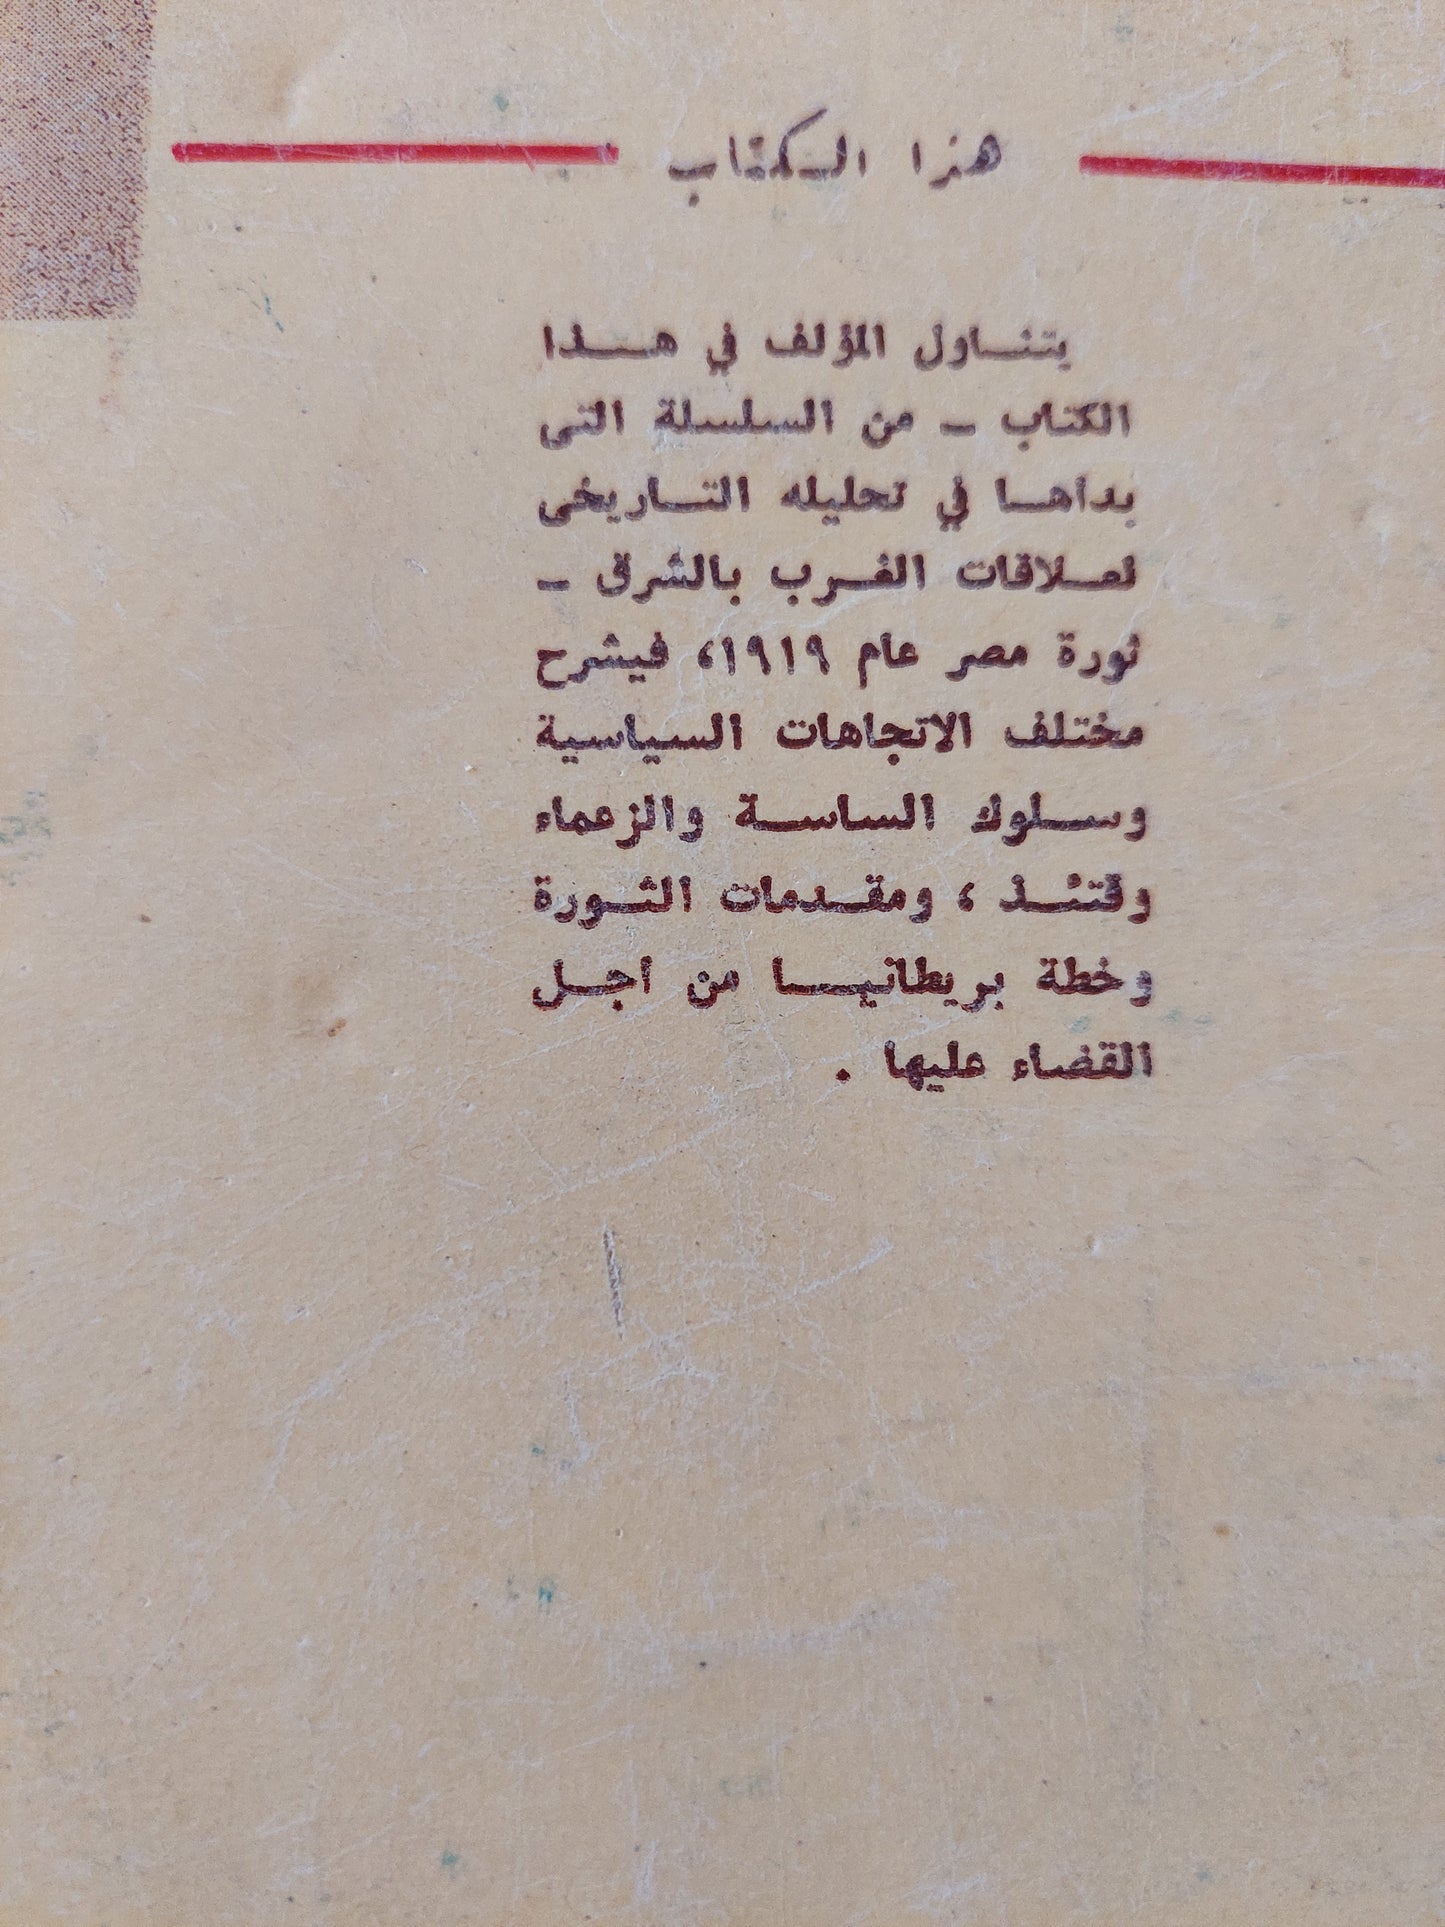 هذا الكتاب
يتناول المؤلف في هذا
الكتاب – من السلسلة التى
بداها في تحليله التاريخى
لعلاقات الغرب بالشرق –
ثورة مصر عام ١٩١٩، فيشرح
مختلف الاتجاهات السياسية
وسلوك الساسة والزعماء
وقتئذ ، ومقدمات الثورة
وخطة بريطانيا من اجل
القضاء عليها .